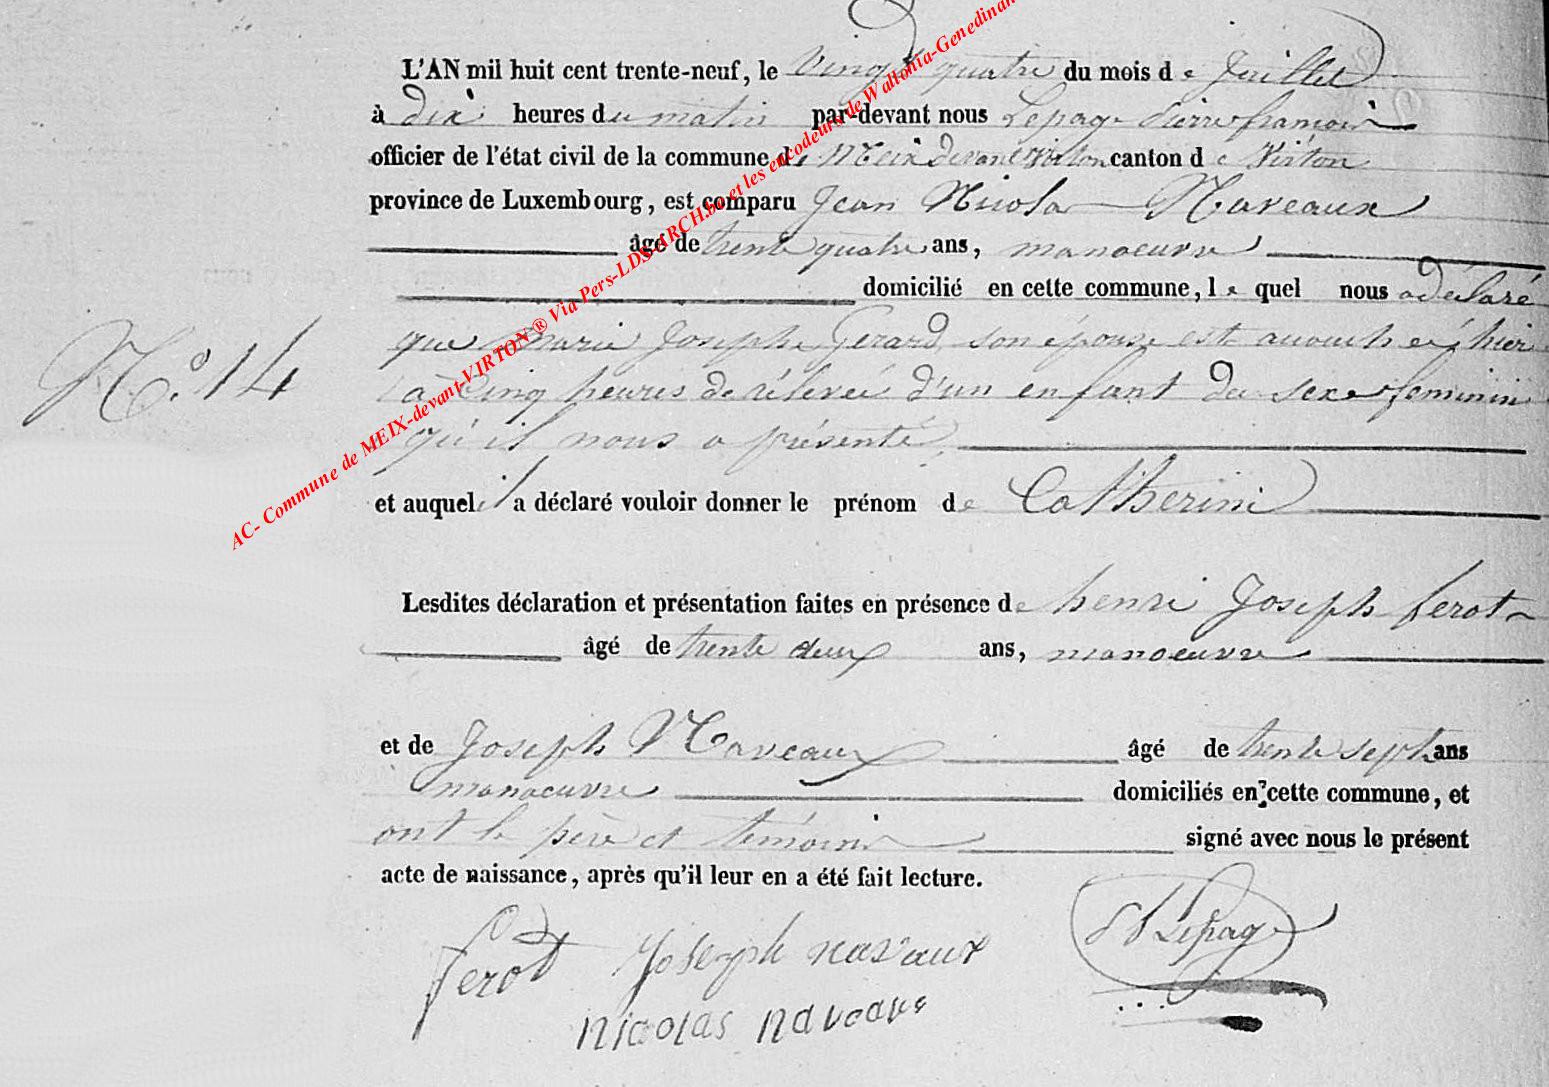 L'AN mil huit cent trente-neuf, le Vingt quatre du mois de Juillet
à dix heures du matin par-devant nous Lepage Pierre françois
officier de l'état civil de la commune de Meix devant Virton canton de Virton
province de Luxembourg, est comparu Jean Nicolas Naveaux
âgé de trente quatre ans, manoeuvre
domicilié en cette commune, le quel nous a déclaré
que marie Joseph Gerard son épouse est accouchée hier
N.º 14
à Cinq heures de relevée d'un enfant du sexe feminin
qu'il nous a présenté,
et auquel il a déclaré vouloir donner le prénom de Catherine
Lesdites déclaration et présentation faites en présence de henri Joseph ferot
âgé de trente deux ans, manoeuvre
et de Joseph Naveaux âgé de trente sept ans
manoeuvre domiciliés en cette commune, et
ont le père et témoins signé avec nous le présent
acte de naissance, après qu'il leur en a été fait lecture.
ferot Joseph navaux Lepage
nicolas naveaux
AC- Commune de MEIX-devant-VIRTON ® Via Pers-LDS-ARCH.be et les encodeurs de Wallonia-Genedinan